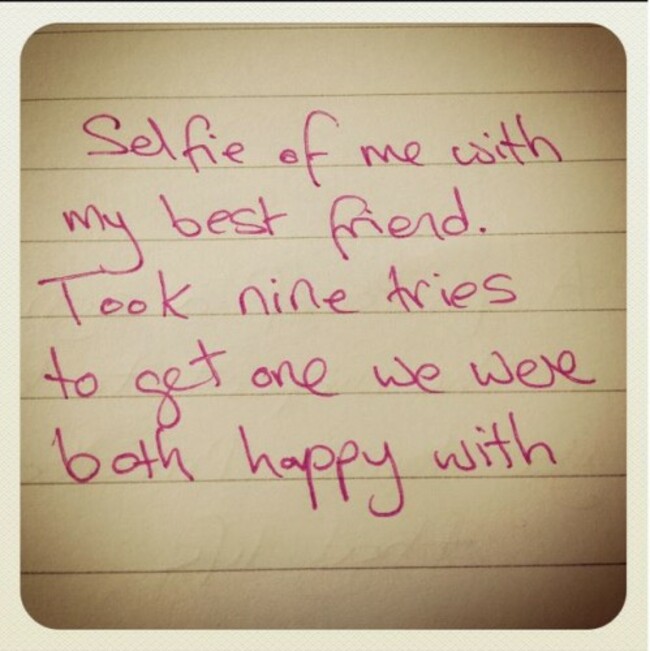 Selfie of me with
my best friend.
Took nine tries
to get one we were
both happy with